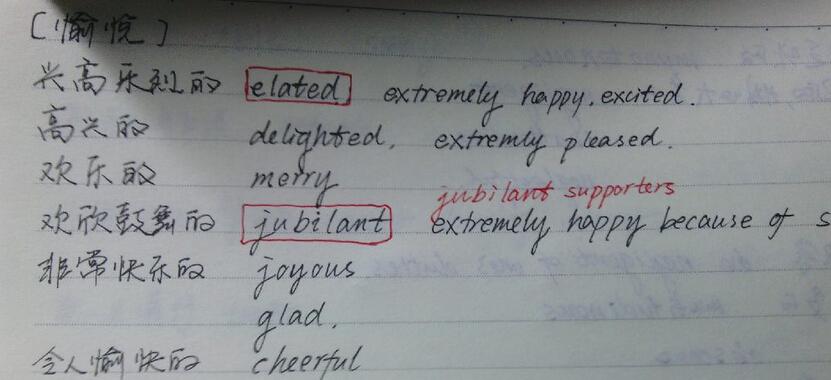 [愉悦]
兴高采烈的 elated extremely happy, excited.
高兴的 delighted, extremly pleased.
欢乐的 merry
jubilant supporters
欢欣鼓舞的 jubilant extremely happy because of s
非常快乐的 joyous
glad.
令人愉快的 cheerful